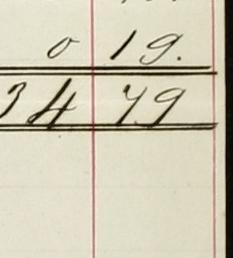 0 19.
34 79